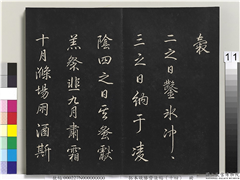 裊
二之日鑿冰沖〻
三之日納于凌
陰四之日其蚤獻
羔祭韭九月肅霜
十月滌場朋酒斯